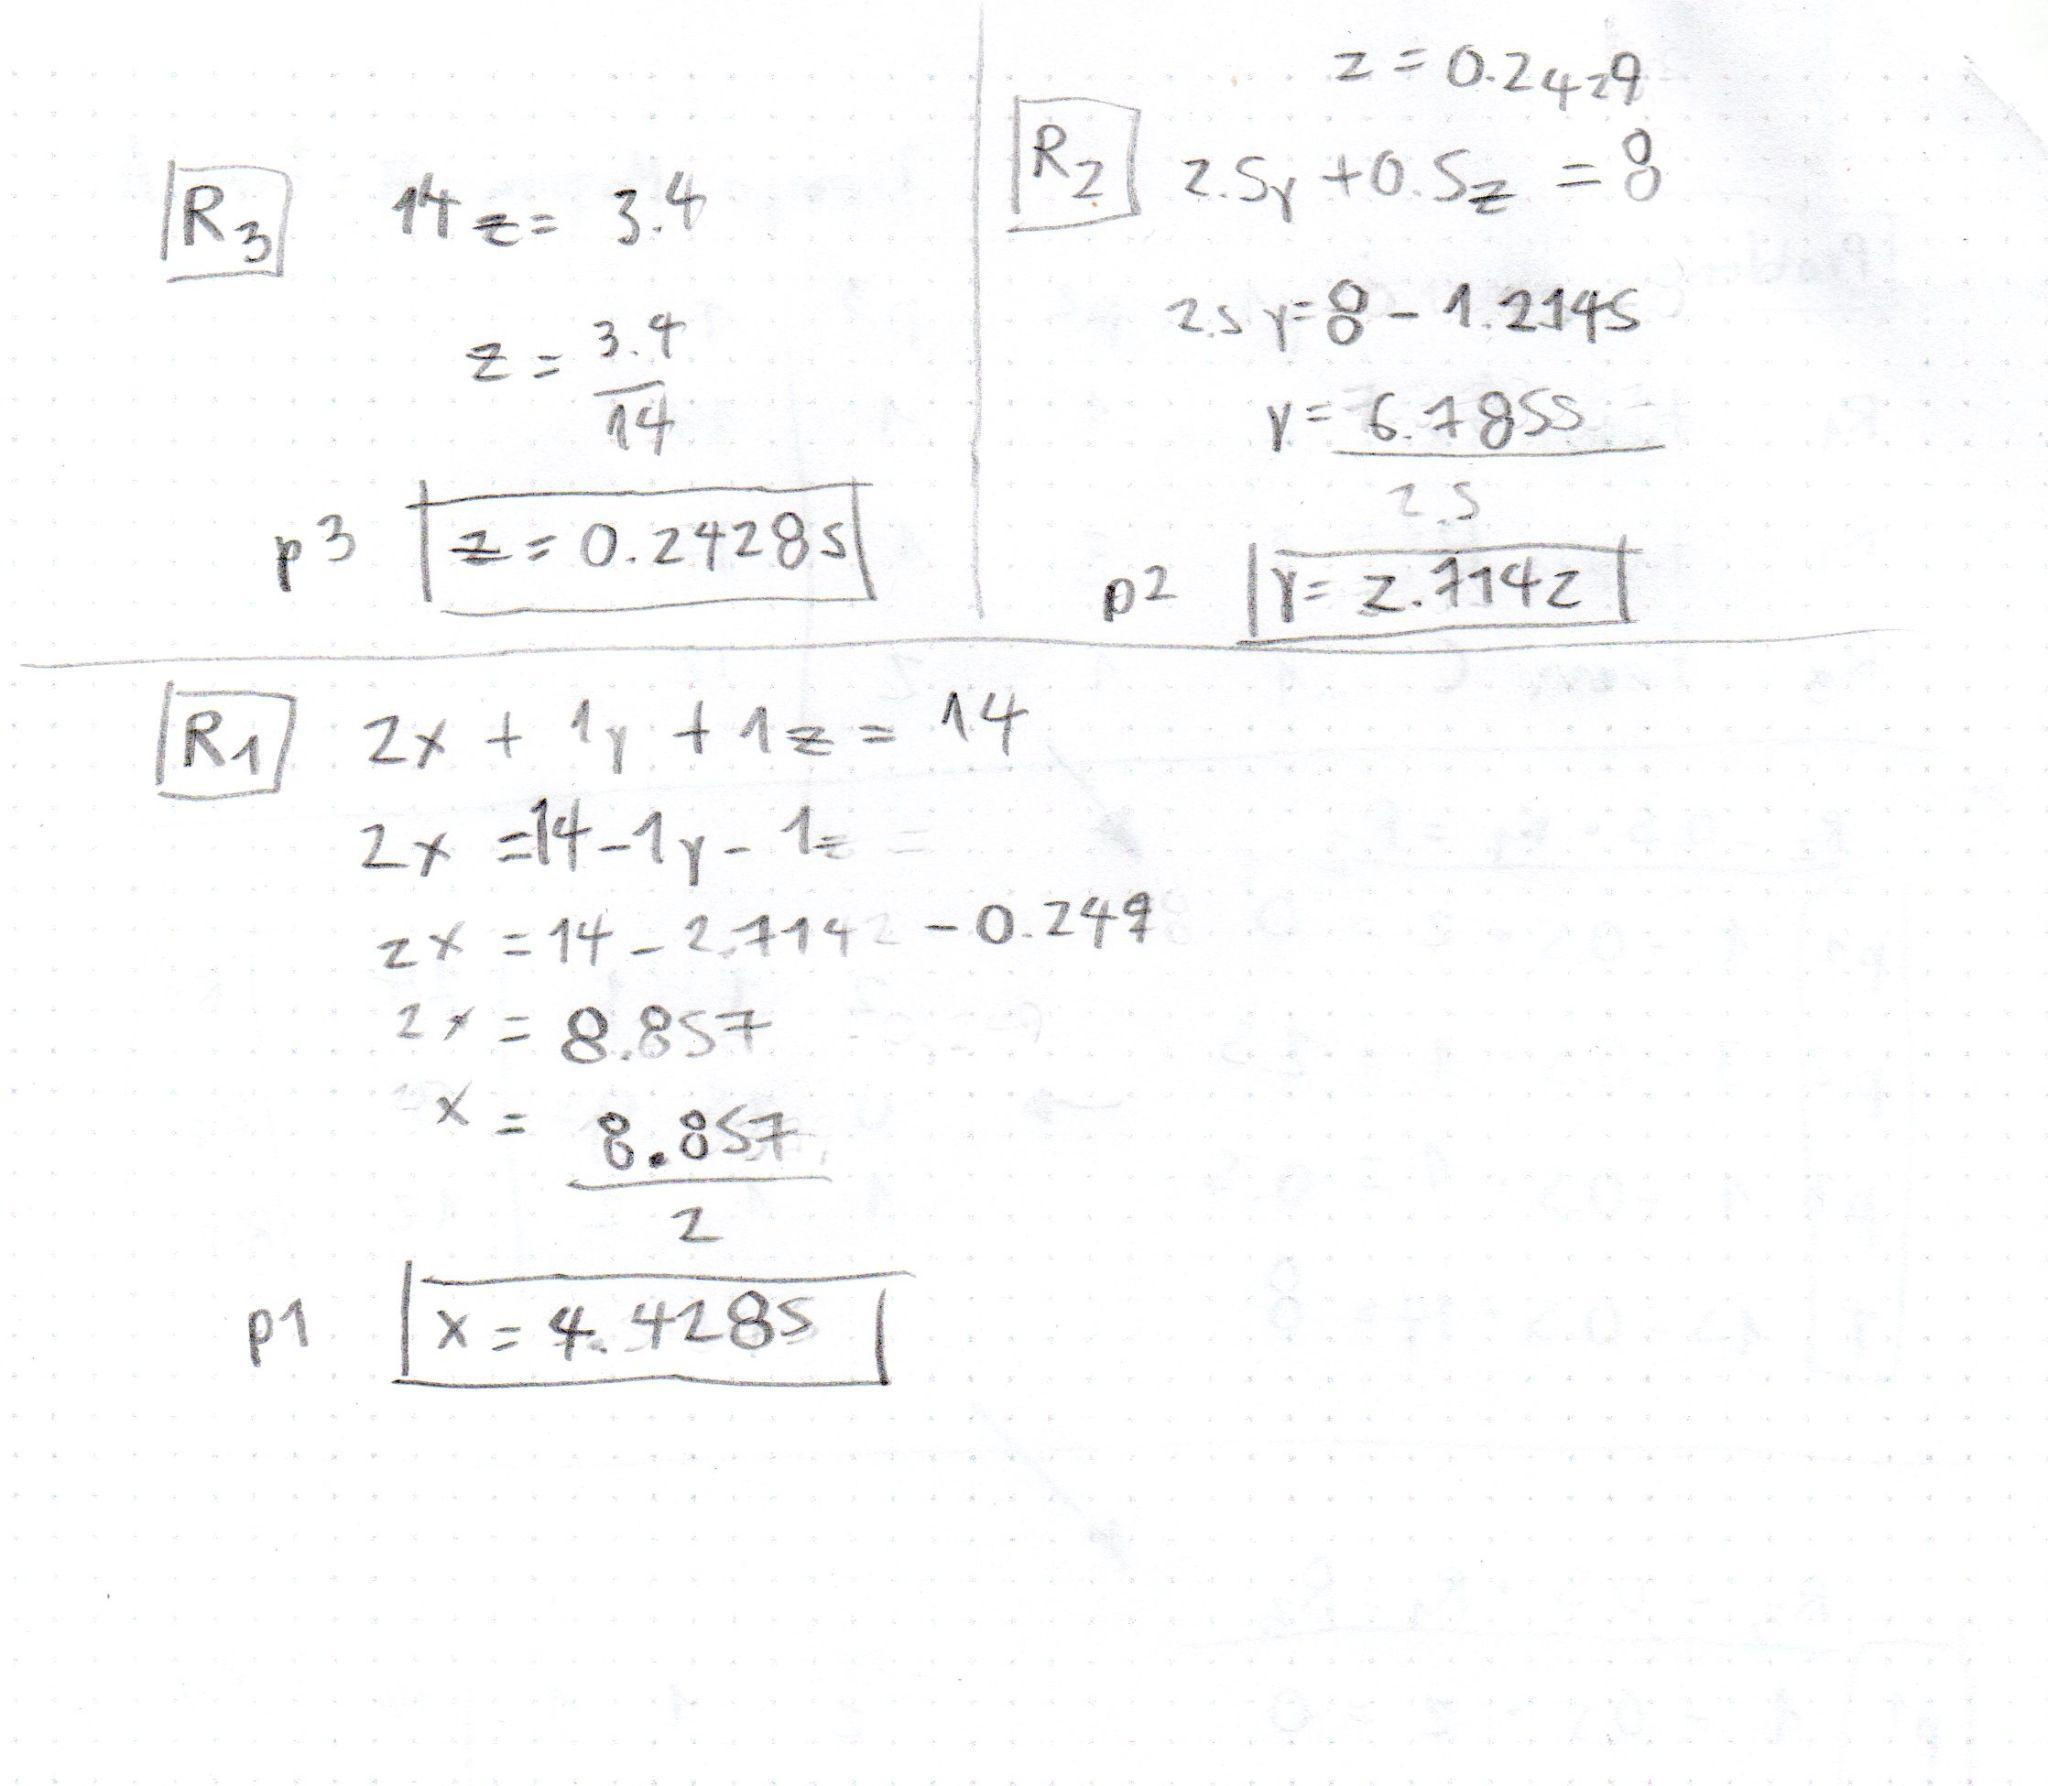 R3 14z = 3.4
z = 3.4
14
p3 z = 0.24285
z = 0.2429
R2 2.5y + 0.5z = 8
2.5y = 8 - 1.2145
y = 6.7855
2.5
p2 y = 2.7142
R1 2x + 1y + 1z = 14
2x = 14 - 1y - 1z =
2x = 14 - 2.7142 - 0.249
2x = 8.857
x = 8.857
2
p1 x = 4.4285